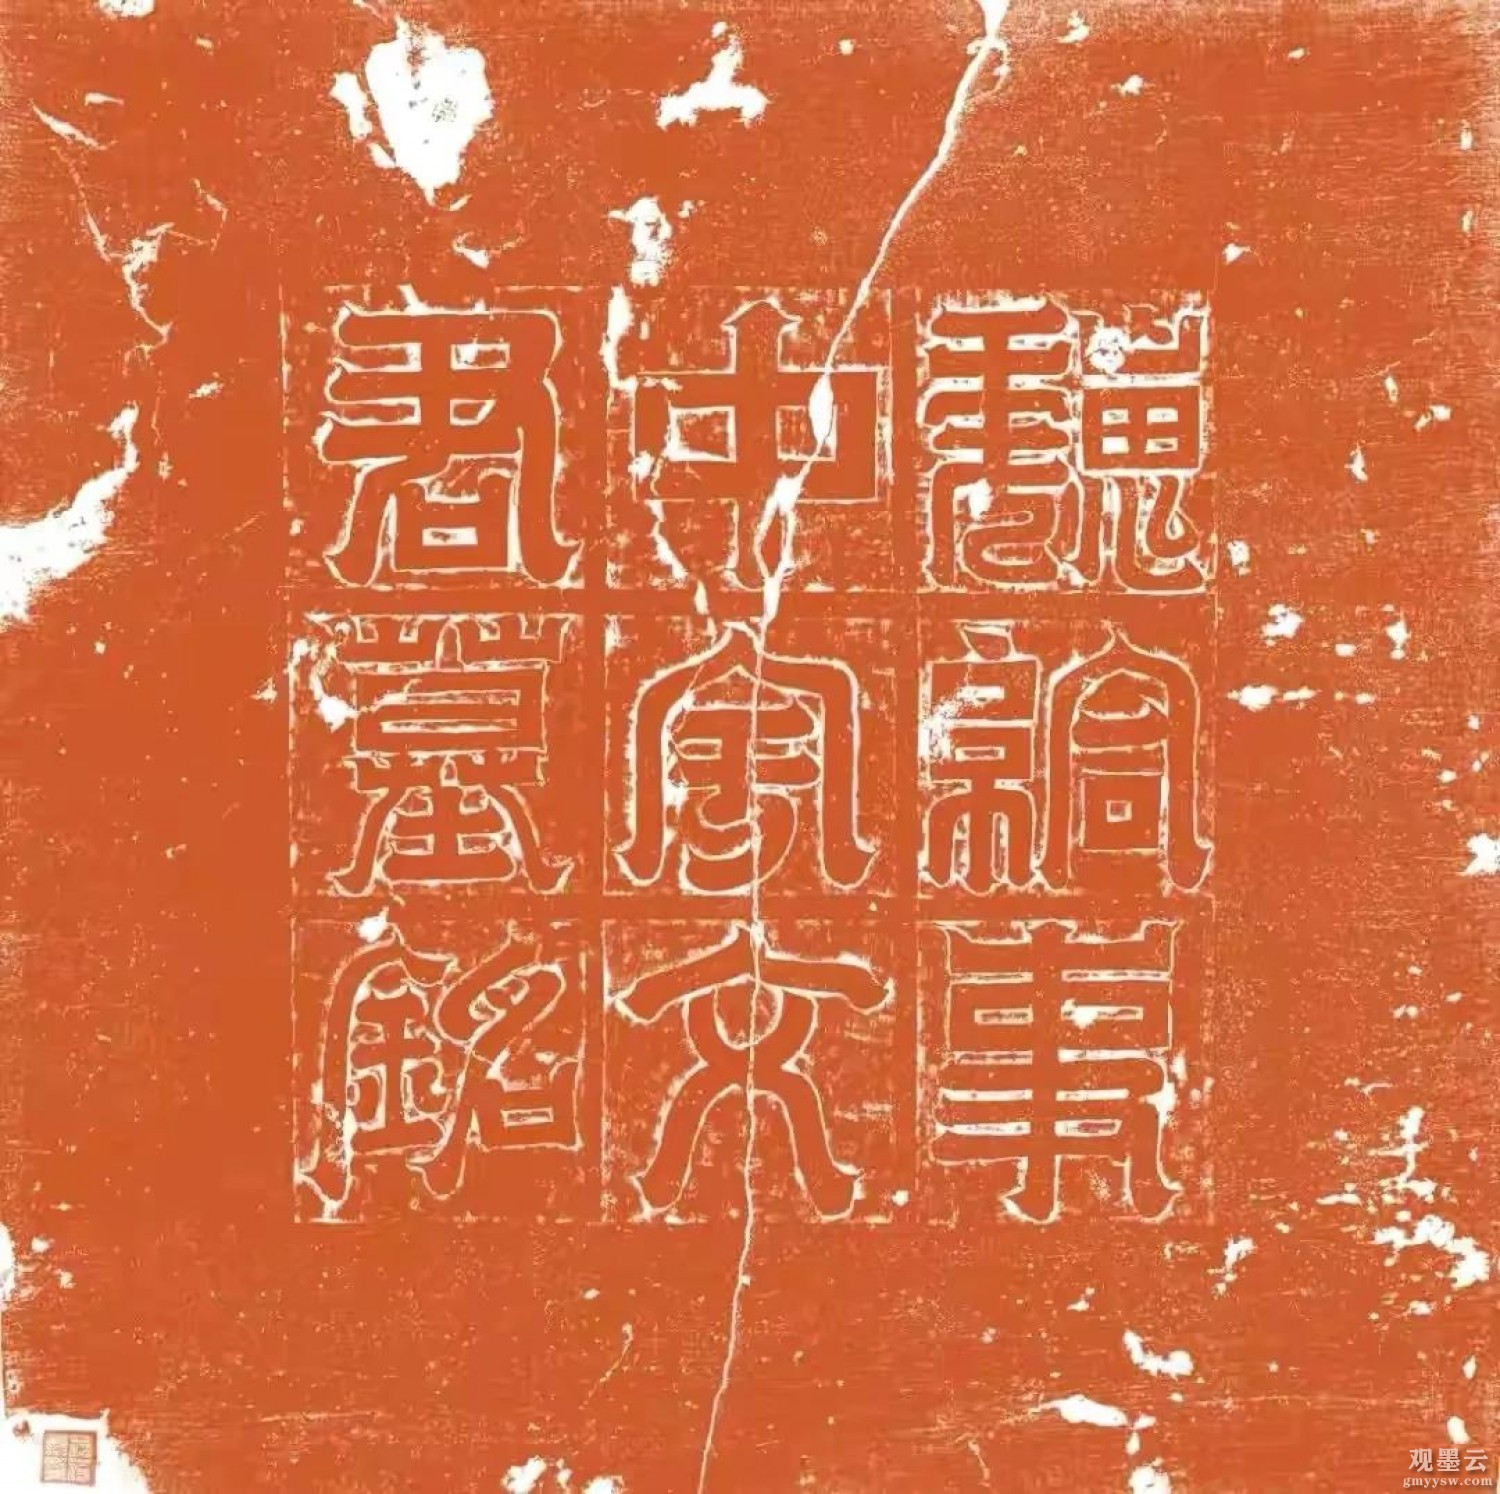 魏給事
中宇文
君墓銘
观墨云
gmyysw.com